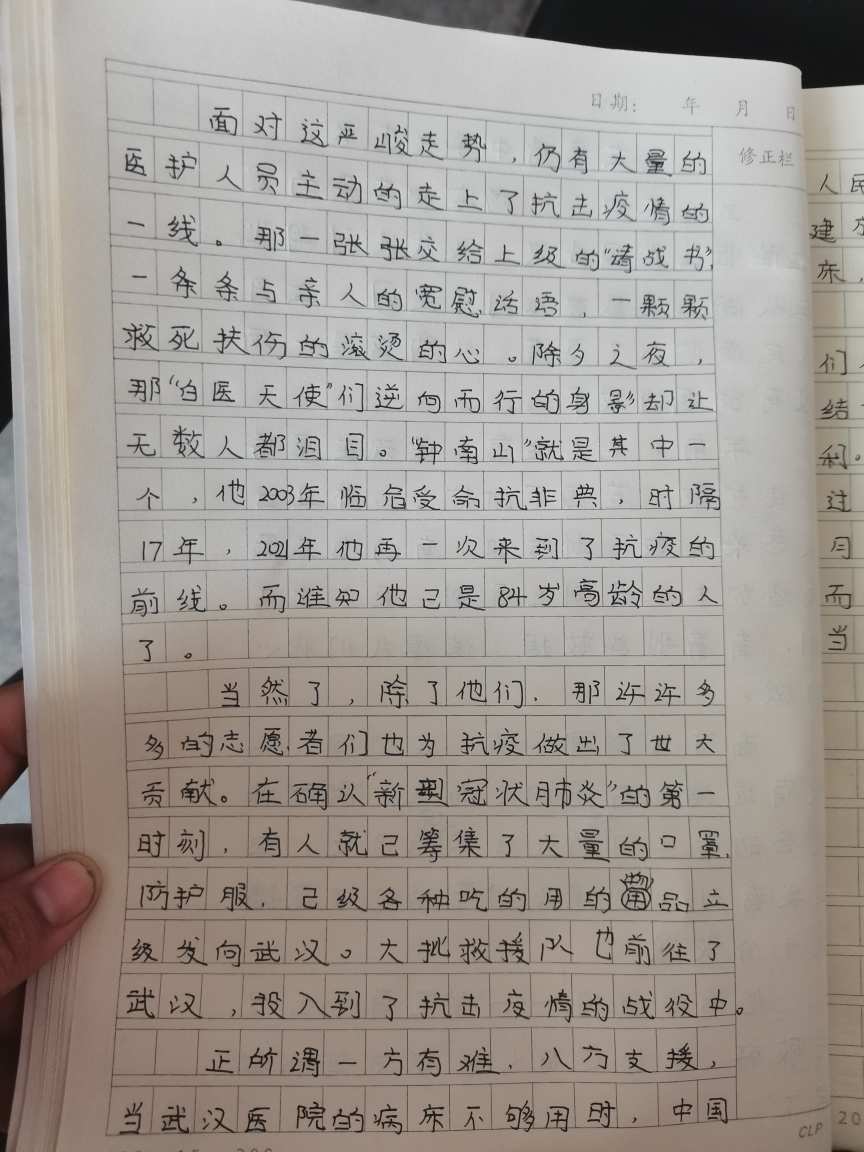 日期： 年 月 日
修正栏
面对这严峻走势，仍有大量的
医护人员主动的走上了抗击疫情的
一线。那一张张交给上级的“请战书”，
一条条与亲人的宽慰话语，一颗颗
救死扶伤的滚烫的心。除夕之夜，
那“白医天使”们逆向而行的身影却让
无数人都泪目。“钟南山”就是其中一
个，他2003年临危受命抗非典，时隔
17年，2021年他再一次来到了抗疫的
前线。而谁知他己是84岁高龄的人
了。
当然了，除了他们，那许许多
多的志愿者们也为抗疫做出了世大
贡献。在确认“新型冠状肺炎”的第一
时刻，有人就己筹集了大量的口罩，
防护服，己级各种吃的用的品立
级发向武汉。大批救援队也前往了
武汉，投入到了抗击疫情的战役中。
正所谓一方有难，八方支援，
当武汉医院的病床不够用时，中国
CLP
人民
建
床，
们
结
利。
过
月
而
当
20